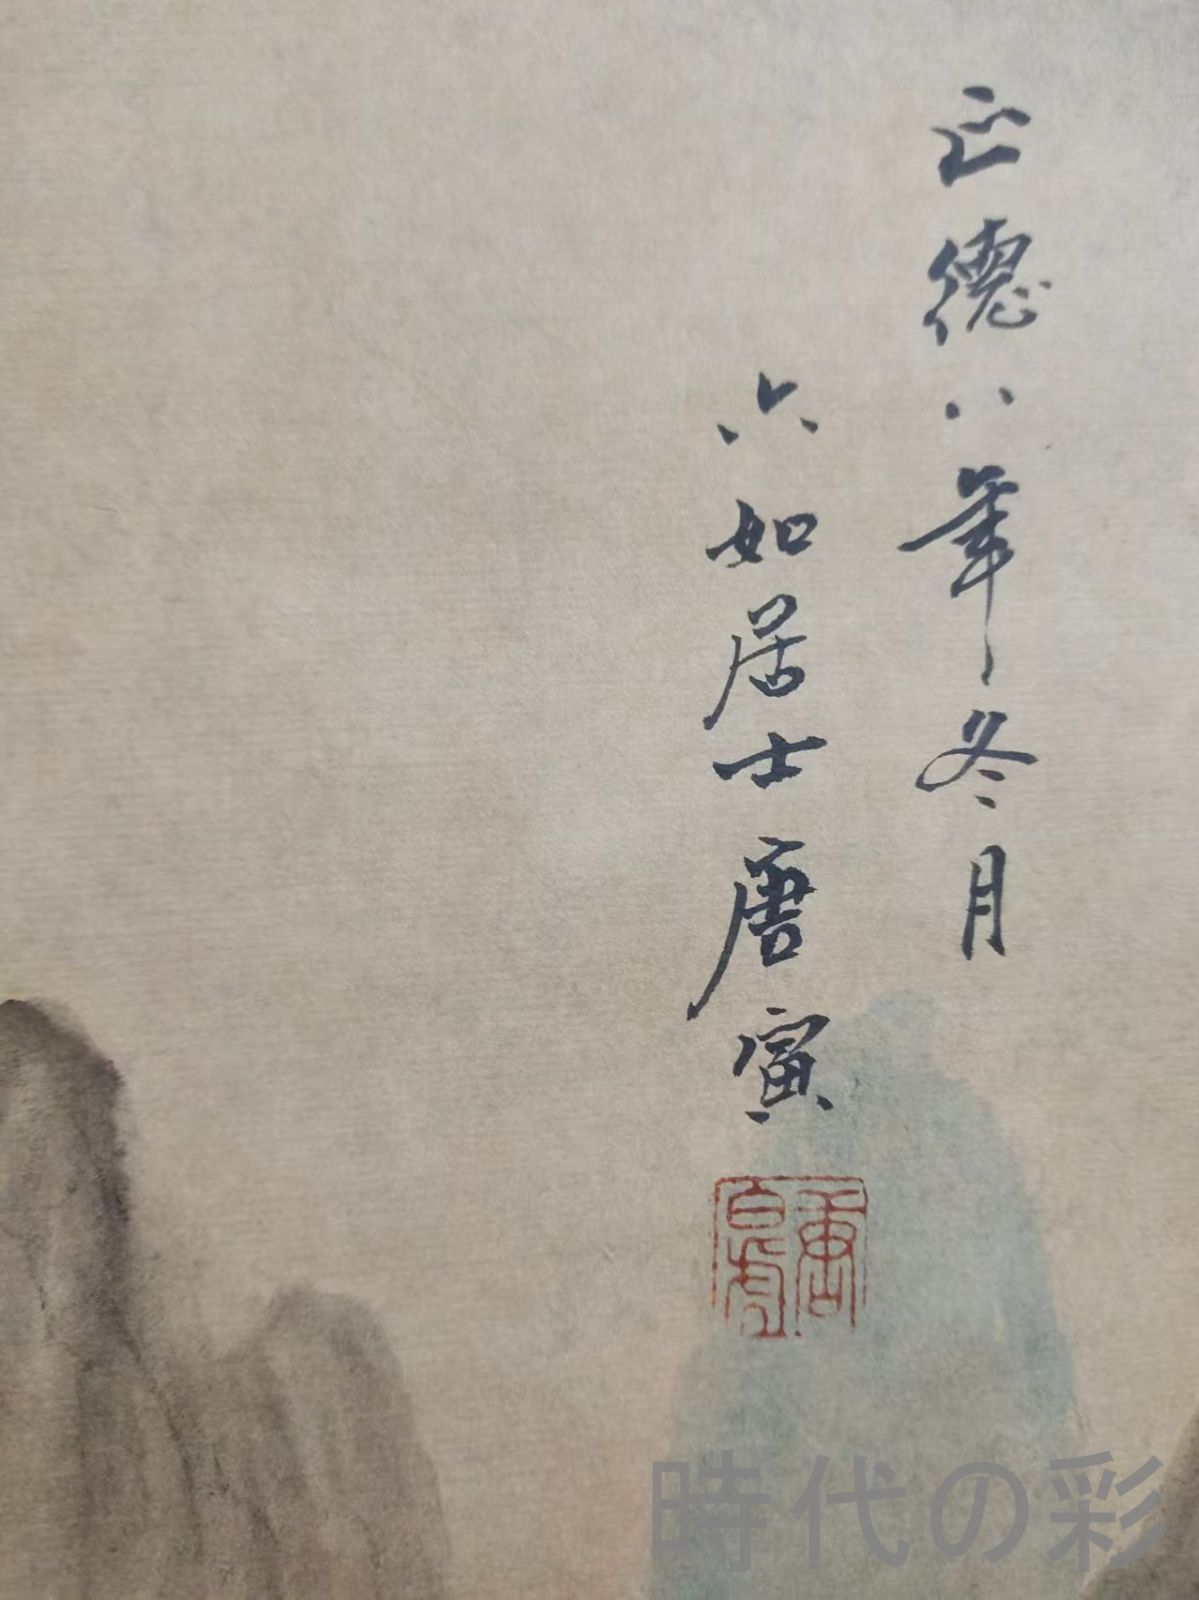 正德八年冬月
六如居士唐寅
唐寅
時代の彩